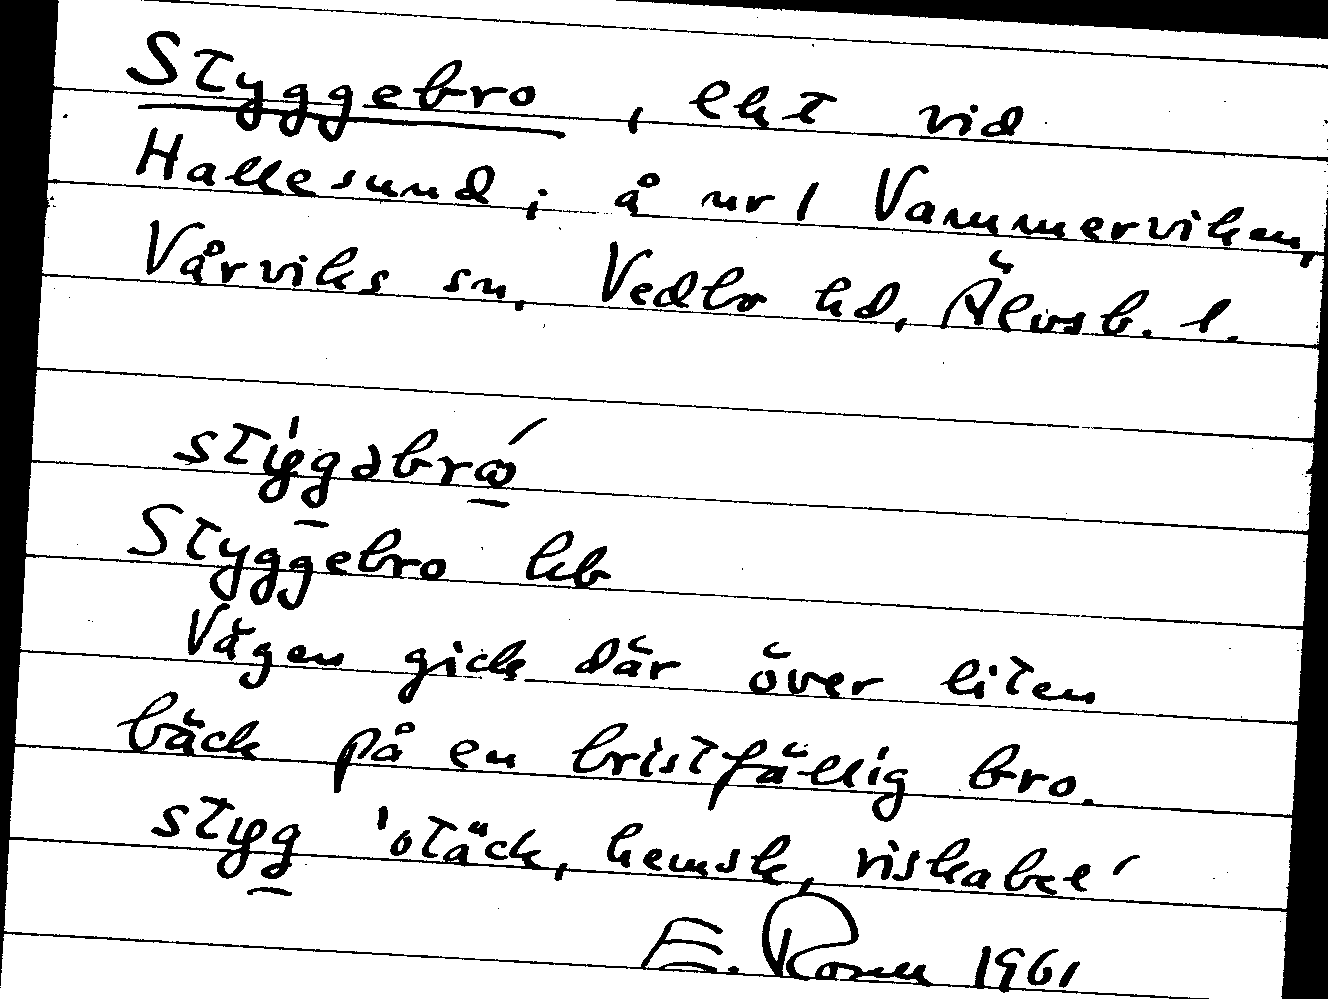 Styggebro, lht vid
Hallesund, å nr 1 Vammerviken,
Vårviks sn, Vedbo hd, Älvsb. l.
stýg̱əbrώ̱
Styggebro kb
Vägen gick där över liten
bäck på en bristfällig bro.
styg̱ 'otäck, hemsk, riskabel'
E. 1961